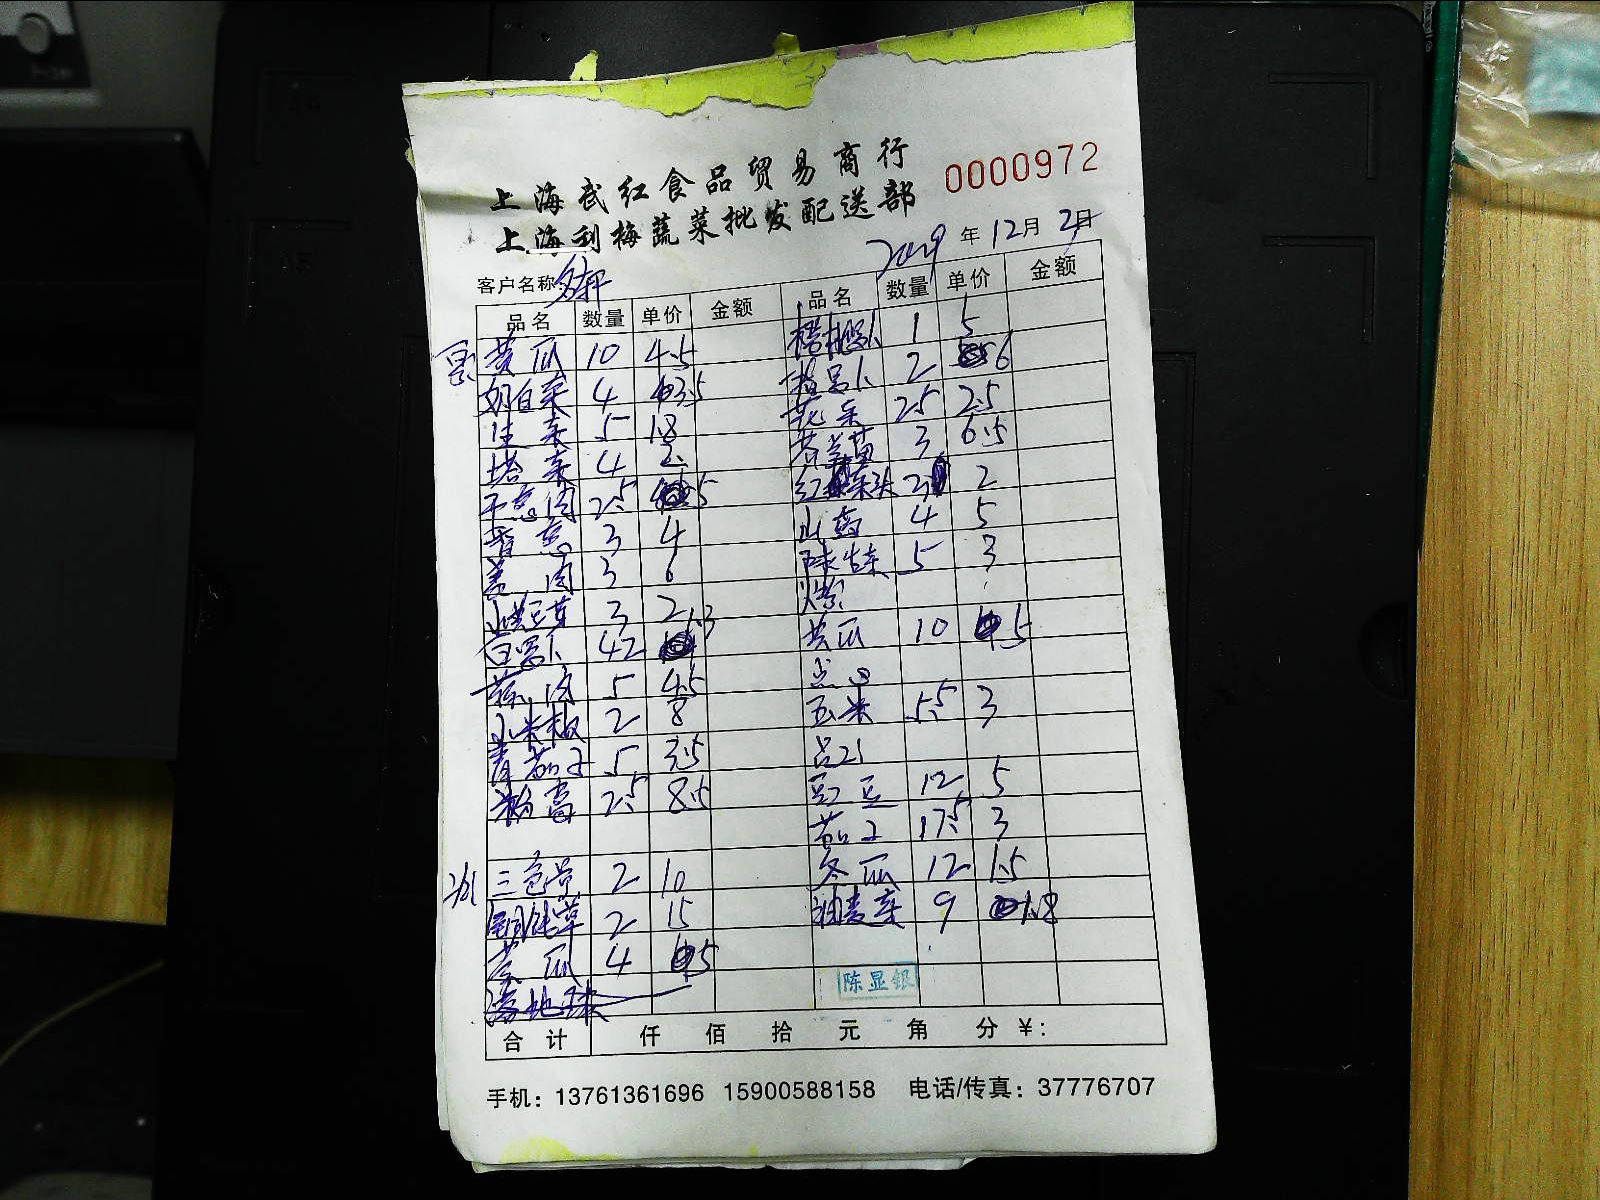 上海武红食品贸易商行
0000972
上海利梅蔬菜批发配送部
2019年12月2日
客户名称:
品名 数量 单价 金额 品名 数量 单价 金额
黄瓜 10 4.5
奶白菜 4 3.5
生菜 5 1.8
塔菜 4 2
干葱肉 2.5 5
香葱 3 4
姜肉 3 6
黄豆芽 3 2
白罗卜 42 1.3
蒜肉 5 4.5
小米椒 2 8
青茄子 5 3.5
2.5 8.5
三色堇 2 10
2 15
黄瓜 4 5
落地球
1 5
2 6
花菜 25 2.5
3 6.5
红菜头 2
山药 4 5
球生菜 5 3
黄瓜 10 5
点心
玉米 5.5 3
12 5
茄子 17.5 3
冬瓜 12 1.5
油麦菜 9 1.8
陈显银
合计 仟 佰 拾 元 角 分 ¥:
手机: 13761361696 15900588158 电话/传真: 37776707